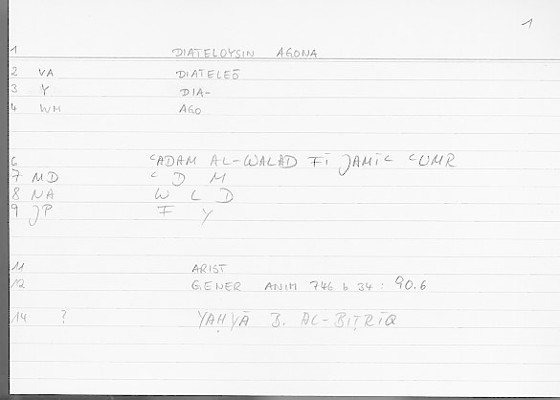 1
1 DIATELOYSIN AGONA
2 VA DIATELEŌ
3 Y DIA-
4 WM AGO
6 ʿADAM AL-WALAD FĪ JAMĪʿ ʿUMR
7 MD ʿ D M
8 NA W L D
9 JP F Y
11 ARIST
12 GENER ANIM 746 b 34 : 90.6
14 ? YAḤYĀ B. AL-BIṬRĪQ